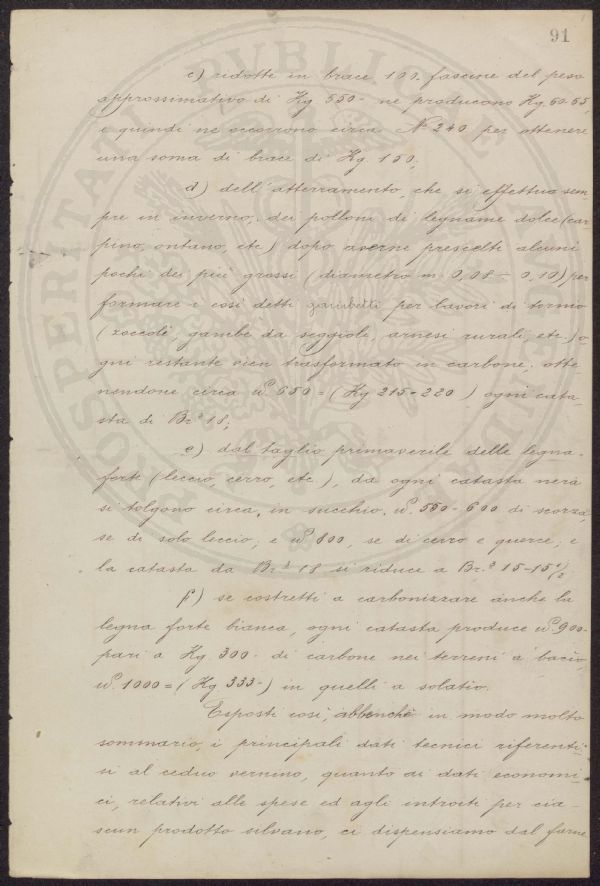 91
c) ridotte in brace 100 fascine del peso
approssimativo di Kg 550- ne producono Kg. 60-65,
e quindi ne occorrono circa N° 240 per ottenere
una soma di brace di Kg 150;
d) dell'atterramento, che si effettua sem-
pre in inverno, dei polloni di legname dolce (car
pino, ontano, etc) dopo averne prescelti alcuni
pochi dei più grossi (diametro m. 0,08 = 0,10) per
formare i così detti gambetti per lavori di tornio
(zoccoli, gambe da seggiole, arnesi rurali, etc.) o-
gni restante vien trasformato in carbone, otte-
nendone circa 650 = (Kg 215-220) ogni cata-
sta di Br.a 18;
e) dal taglio primaverile delle legna-
forte (leccio, cerro, etc.), da ogni catasta nera
si tolgono circa, in succhio, 550-600 di scorza,
se di solo leccio; e 800, se di cerro e querce; e
la catasta da Br.a 18 si riduce a Br.a 15-15 1/2;
f) se costretti a carbonizzare anche la
legna forte bianca, ogni catasta produce 900-
pari a Kg 300- di carbone nei terreni a bacio,
1000 = (Kg 333-) in quelli a solatio.
Esposti così, abbenchè in modo molto
sommario, i principali dati tecnici riferenti-
si al ceduo vernino, quanto ai dati economi-
ci, relativi alle spese ed agli introiti per cia-
scun prodotto silvano, ci dispensiamo dal farne
PROSPERITATI PUBLICAE